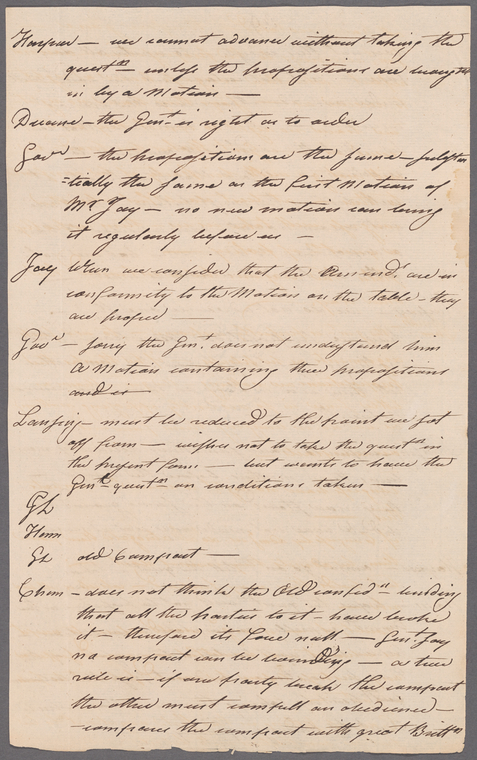 Harper — we cannot advance without taking the
questn — unless the propositions are brought
in by a Motion —
Duane — the Gent is right as to order
Govr — the propositions are the same — substan
=tially the same as the first Motion of
Mr Jay — no new motion can bring
it regularly before us —
Jay When we consider that the amendts are in
conformity to the Motion on the table — they
are proper —
Govr — sorry the Gent. does not understand him
a Motion containing these propositions
and is
Lansing — must be reduced to the point we got
off from — wishes not to take the questn in
the present form — but wants to have the
Genl questn on conditions taken —
GL
Ham
GL old Compact —
Chan — does not think the Old confedn binding
that all the parties to it — have broke
it — therefore its force null — Gent Jay
no compact can be bounding — a true
rule is — if one party break the compact
the other must compell an obedience —
— compares the compact with great Brittn